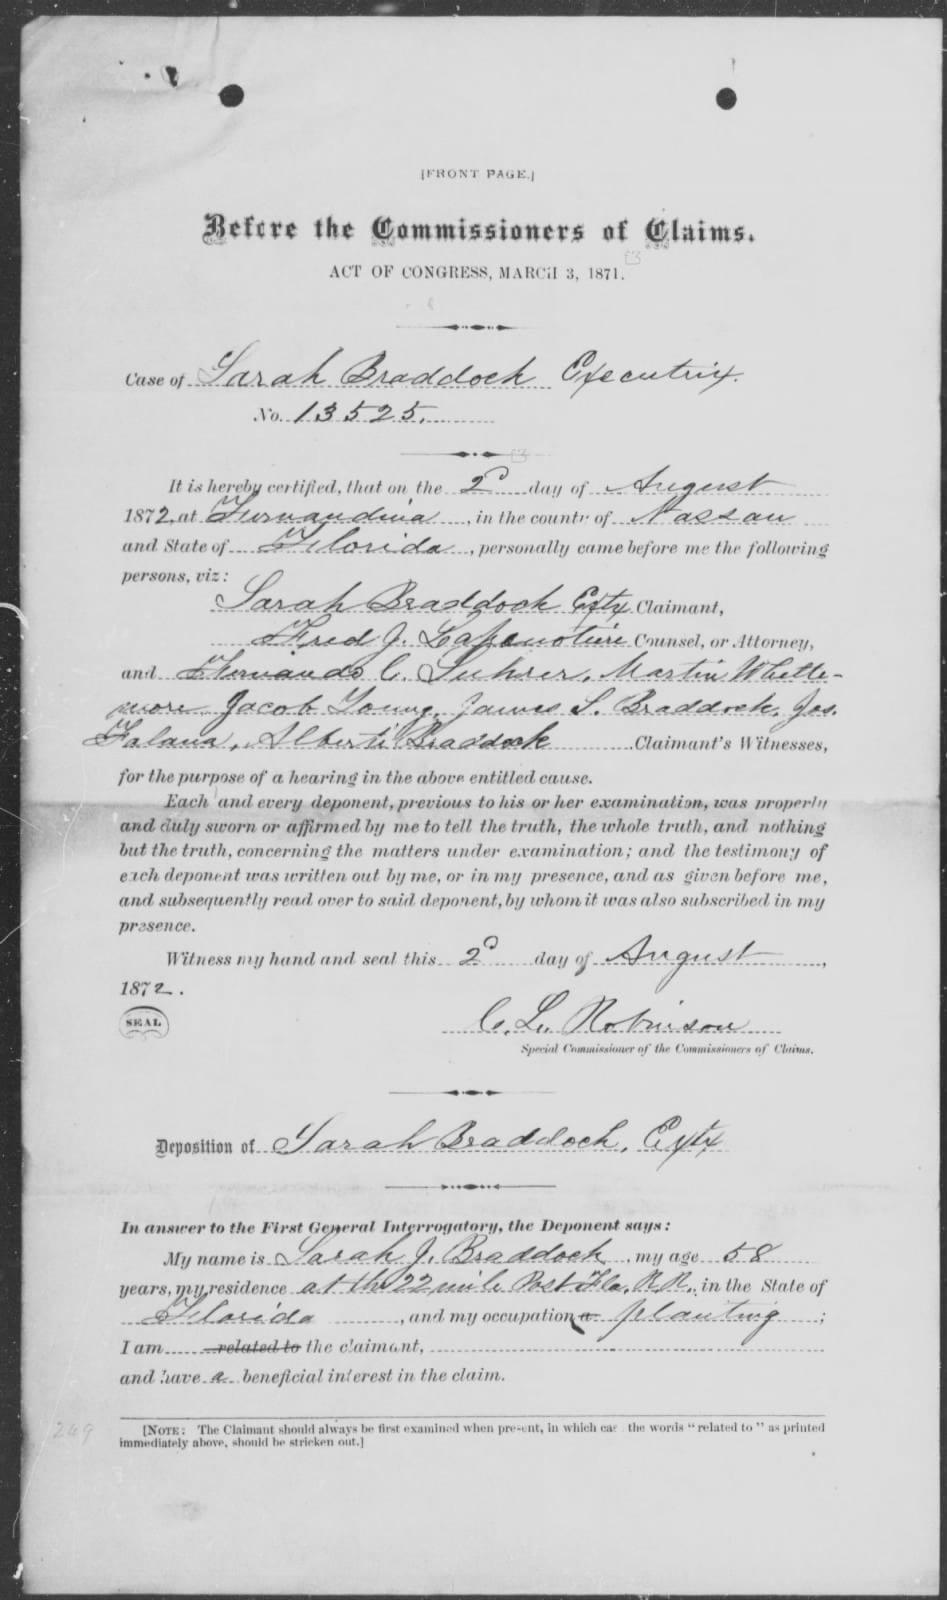 [FRONT PAGE.]
Before the Commissioners of Claims.
ACT OF CONGRESS, MARCH 3, 1871.
Case of Sarah Braddock Executrix.
No. 13525.
It is hereby certified, that on the 2d day of August
1872, at Fernandina, in the county of Nassau
and State of Florida, personally came before me the following
persons, viz:
Sarah Braddock Extx Claimant,
Fred J. Lapenotiere Counsel, or Attorney,
and Fernando C. Suhrer, Martin Whitte-
more Jacob Young, James S. Braddock, Jos.
Falana, Alberti Braddock Claimant's Witnesses,
for the purpose of a hearing in the above entitled cause.
Each and every deponent, previous to his or her examination, was properly
and duly sworn or affirmed by me to tell the truth, the whole truth, and nothing
but the truth, concerning the matters under examination; and the testimony of
each deponent was written out by me, or in my presence, and as given before me,
and subsequently read over to said deponent, by whom it was also subscribed in my
presence.
Witness my hand and seal this 2d day of August,
1872.
SEAL
C. L. Robinson
Special Commissioner of the Commissioners of Claims.
Deposition of Sarah Braddock, Extx
In answer to the First General Interrogatory, the Deponent says:
My name is Sarah J. Braddock, my age 58
years, my residence at the 22 mile Post Fla. R.R., in the State of
Florida, and my occupation a planting;
I am related to the claimant,
and have a beneficial interest in the claim.
249
[NOTE: The Claimant should always be first examined when present, in which case the words "related to" as printed
immediately above, should be stricken out.]